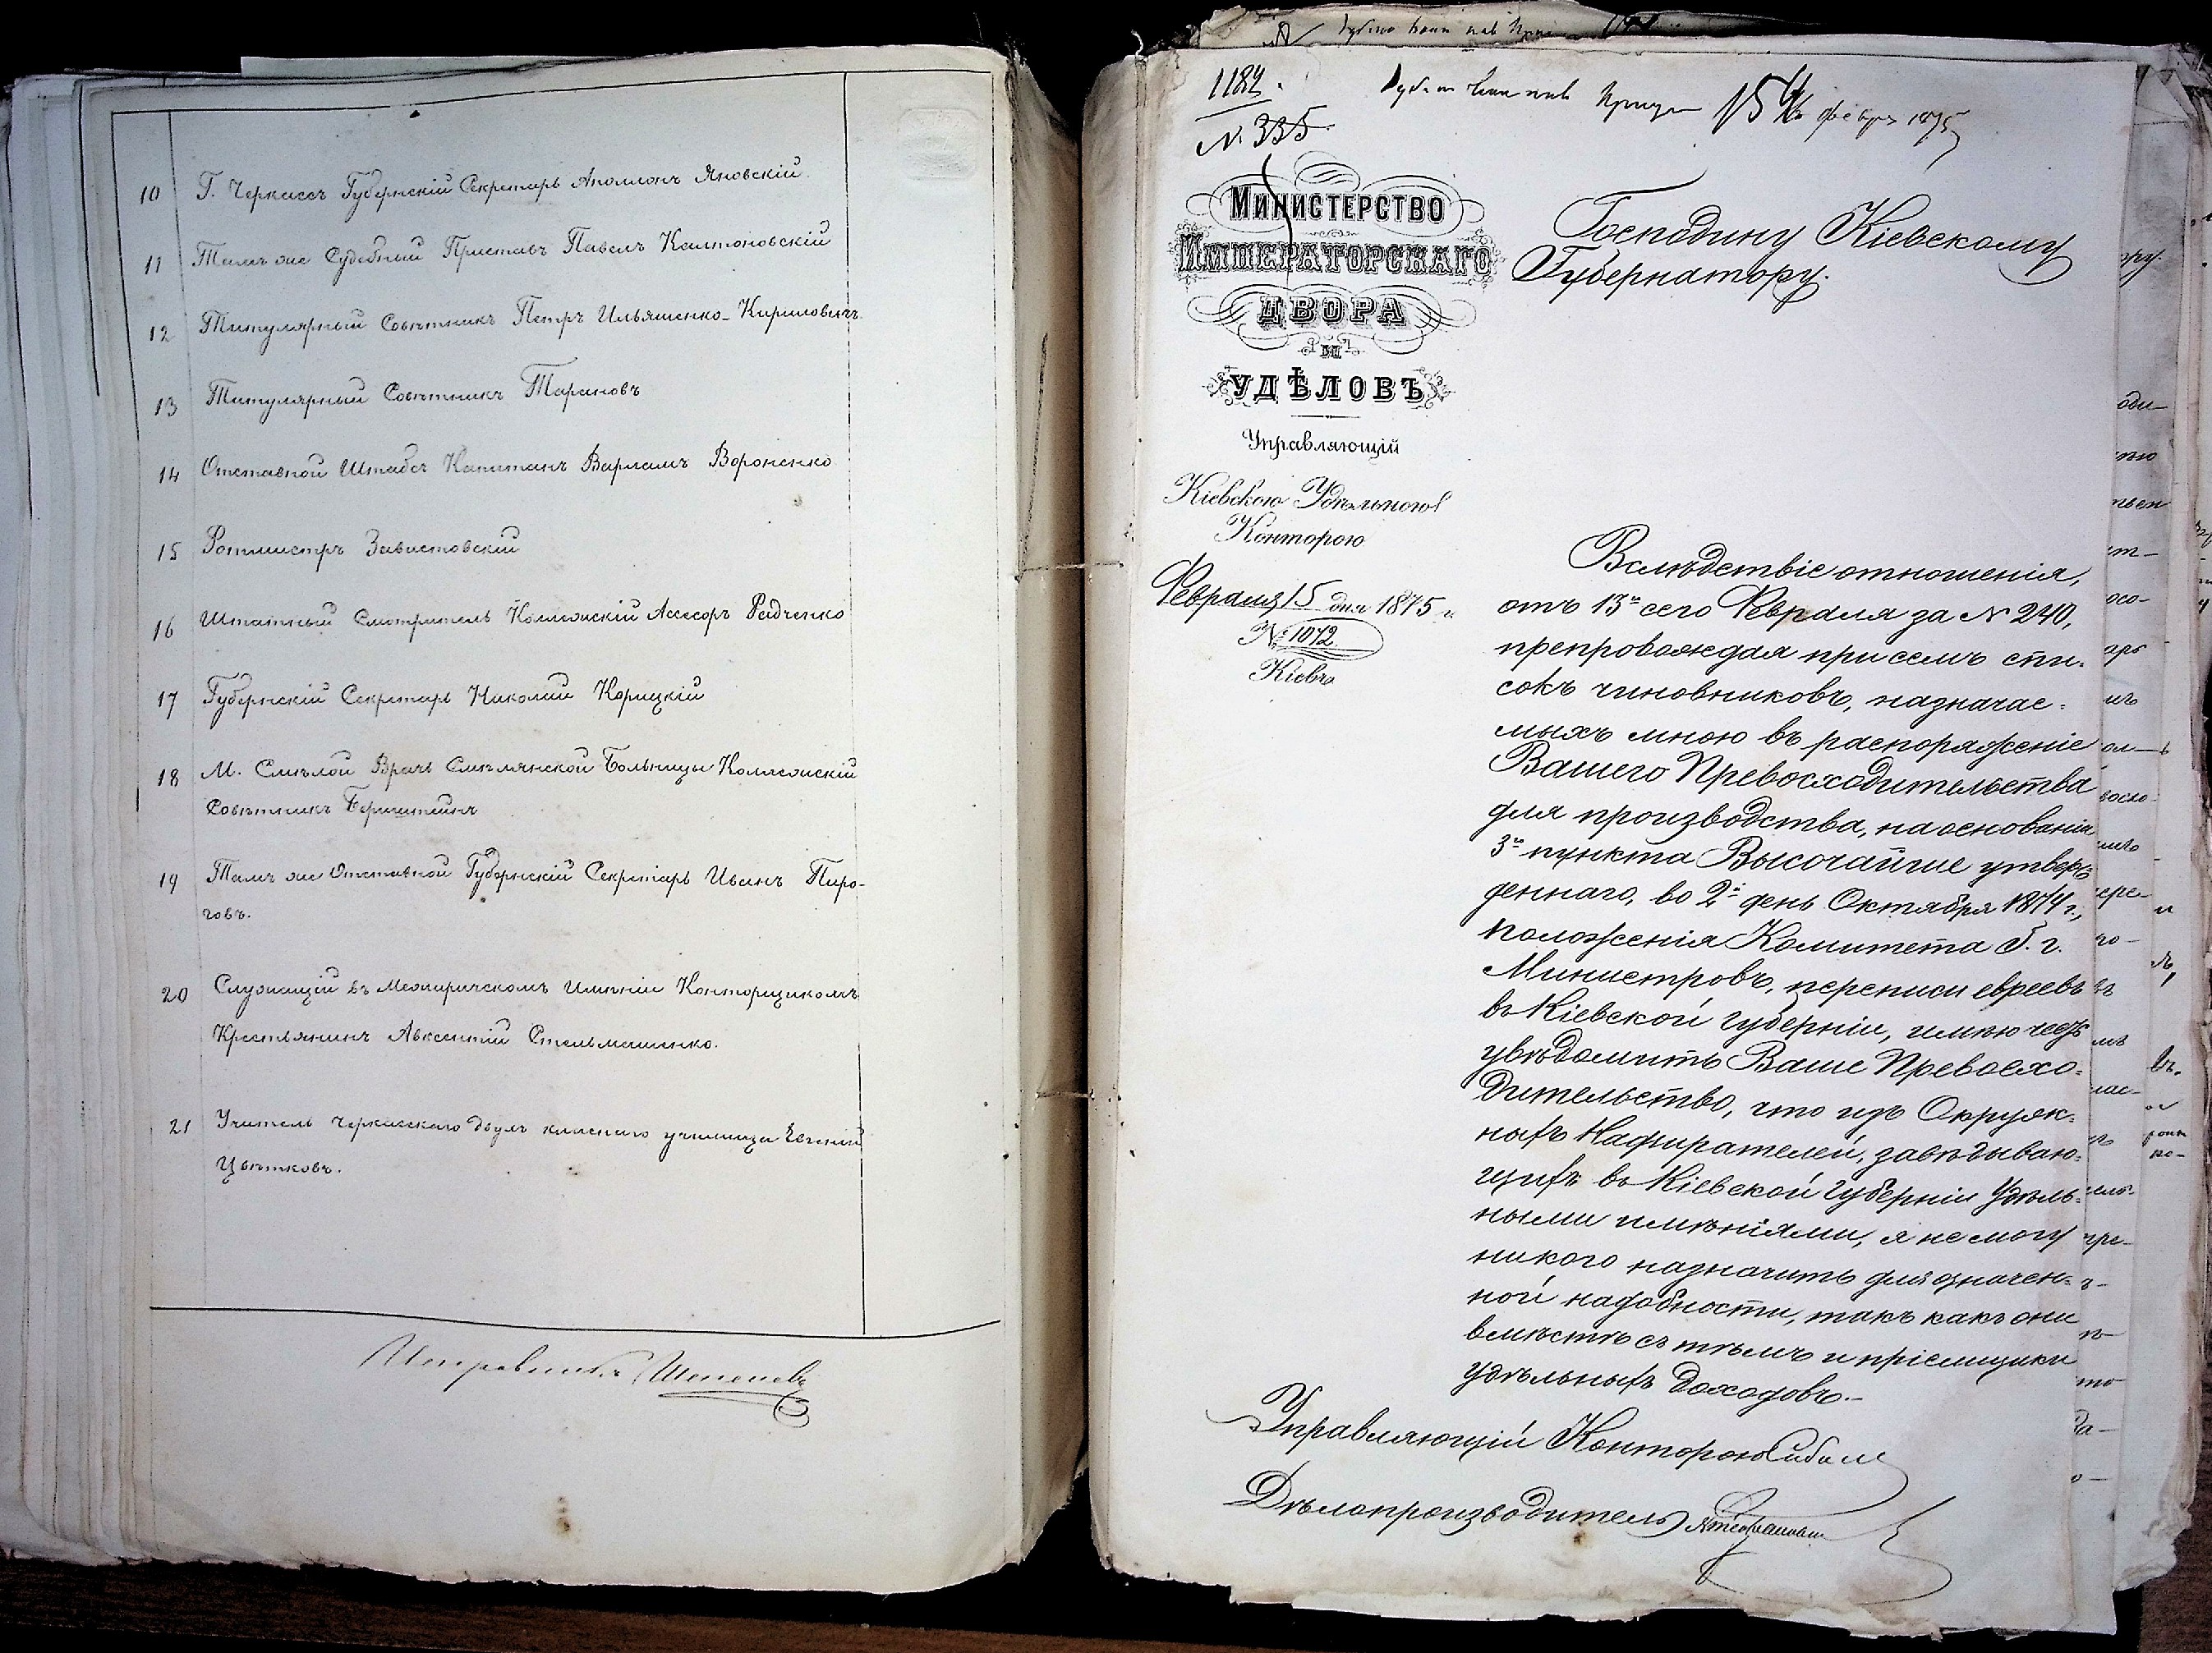 10 Г. Черкассъ Губернскій Секретарь Аполлонъ Яновскій.
11 Тамъ же Судебный Приставъ Павелъ Калтоновскій
12 Титулярный Совѣтникъ Петръ Ильяшенко-Кириловичъ
13 Титулярный Совѣтникъ Тарановъ
14 Отставной Штабсъ Капитанъ Варламъ Вороненко
15 Ротмистръ Завистовскій
16 Штатный Смотритель Колежскій Асесоръ Радченко
17 Губернскій Секретарь Николай Корицкій
18 М. Смѣлой Врачъ Смѣлянской Больницы Колежскій
Совѣтникъ Бернштейнъ
19 Тамъ же Отставной Губернскій Секретарь Иванъ Пиро-
говъ.
20 Служащій въ Межиричскомъ Имѣніи Конторщикомъ
Крестьянинъ Авксентій Стельмашенко.
21 Учитель Черкасскаго двухъ класнаго училища Евгеній
Цвѣтковъ.
Исправникъ
1184.
№ 335
15 февр 1875
МИНИСТЕРСТВО
ИМПЕРАТОРСКАГО
ДВОРА
И
УДѢЛОВЪ
Управляющій
Кіевскою Удѣльною
Конторою
Февраля 15 дня 1875 г.
№ 1072
Кіевъ
Господину Кіевскому
Губернатору.
Вслѣдствіе отношенія,
отъ 13го сего Февраля за № 240,
препровождая при семъ спи-
сокъ чиновниковъ, назначае-
мыхъ мною въ распоряженіе
Вашего Превосходительства
для производства, на основаніи
3го пункта Высочайше утверж-
деннаго, во 2й день Октября 1874 г.,
положенія Комитета Г. г.
Министровъ, переписи евреевъ
въ Кіевской губерніи, имѣю честь
увѣдомить Ваше Превосхо-
дительство, что изъ Окруж-
ныхъ Надзирателей, завѣдываю-
щихъ въ Кіевской губерніи Удѣль-
ными имѣніями, я не могу
никого назначить для означен-
ной надобности, такъ какъ они
вмѣстѣ съ тѣмъ и пріемщики
удѣльныхъ доходовъ.-
Управляющій Конторою
Дѣлопроизводитель